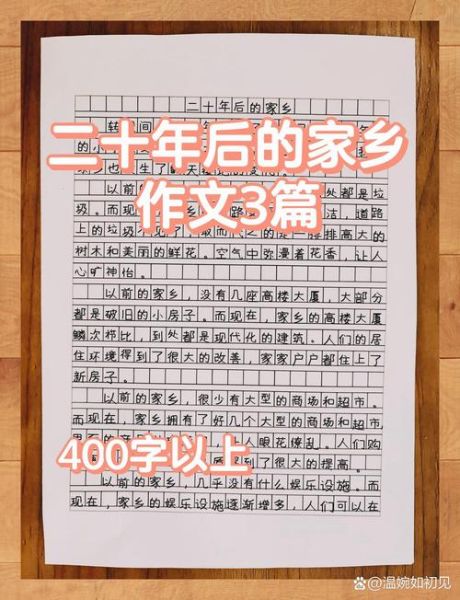 二十年后的家乡
转 间
二十年后的家乡
的小
也 生了
以前的 处都是垃
作文3篇
圾。而现 洁，道路
上的垃圾 见了，取而代之的是一排排高大的
树木和美丽的鲜花。空气中弥漫着花香，让人
心旷神怡。
以前的家乡，没有几座高楼大厦，大部分
都是破旧的小房子。而现在，家乡的高楼大厦
鳞次栉比，到处都是现代化的建筑。人们的居
住环境得到了很大的改善，家家户户都住上了
新房子。
以前的家乡，很少有大型的商场和超市。
而现在，家乡拥有了好几个大型的商场和超市，
人眼花缭乱。人们购
400字以上
到了很大的提高。
以前的家乡，几乎没有什么娱乐设施。而
现在，家乡的娱乐设施逐渐增多，人们可以在
@温婉如初见